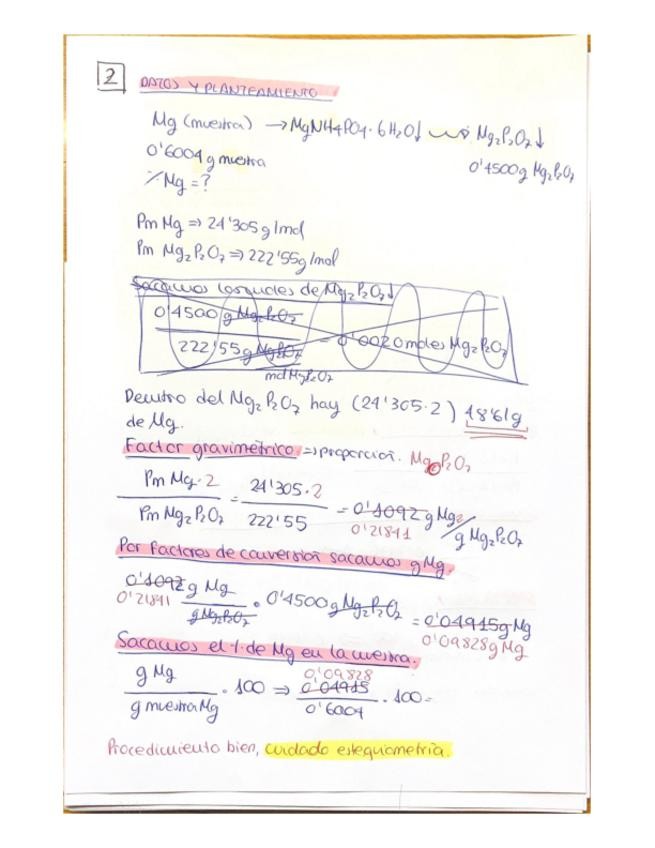 2 DATOS Y PLANTEAMIENTO
Mg (muestra) → MgNH4PO4 · 6H2O↓ ⇝ Mg2P2O7↓
0'6004 g muestra
0'4500g Mg2P2O7
% Mg = ?
Pm Mg ⇒ 24'305 g/mol
Pm Mg2P2O7 ⇒ 222'55g/mol
Sacamos los moles de Mg2P2O7↓
0'4500 g Mg2P2O7
222'55 g Mg2P2O7 = 0'0020 moles Mg2P2O7
mol Mg2P2O7
Dentro del Mg2P2O7 hay (24'305·2) 48'61g
de Mg.
Factor gravimétrico ⇒ proporción. Mg2P2O7
Pm Mg·2 = 24'305·2 = 0'1092 g Mg2
Pm Mg2P2O7 222'55 0'21841 g Mg2P2O7
Por factores de conversión sacamos g Mg.
0'1092 g Mg · 0'4500 g Mg2P2O7 = 0'04915g Mg
0'21841 g Mg2P2O7 0'09828 g Mg
Sacamos el % de Mg en la muestra.
0'09828
g Mg · 100 ⇒ 0'04915 · 100 =
g muestra Mg 0'6004
Procedimiento bien, cuidado estequiometría.